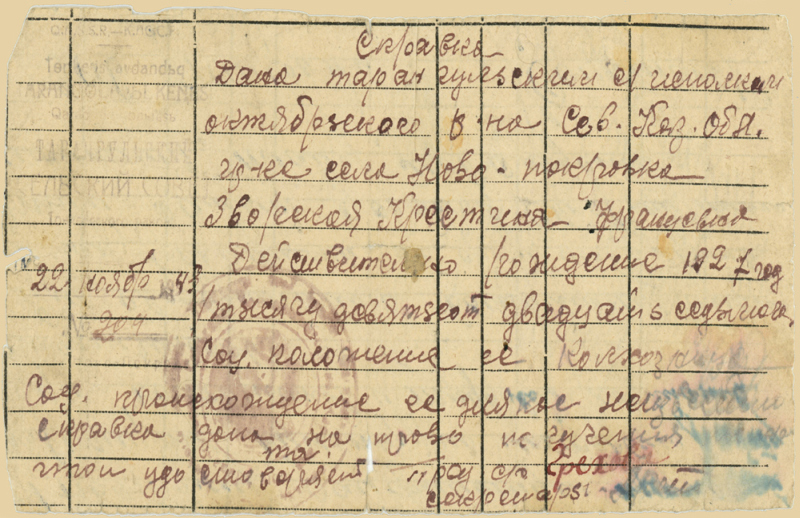 Справка
Дана тарангульским с/ исполком
октябрзского р-на Сев. Каз. Обл.
гр-ке села Ново-покровка
Зворская Крестина Францовна
Действительно рождение 1927 год
22 ноябр 43
/тысячу довятсот двадцать седьмого
№ 204
Соц. положение ее Колхозница
Соц. происхождение ее
справка дона на право получения
та.
что и удостоворяет пред с/с Грехова
секретарь